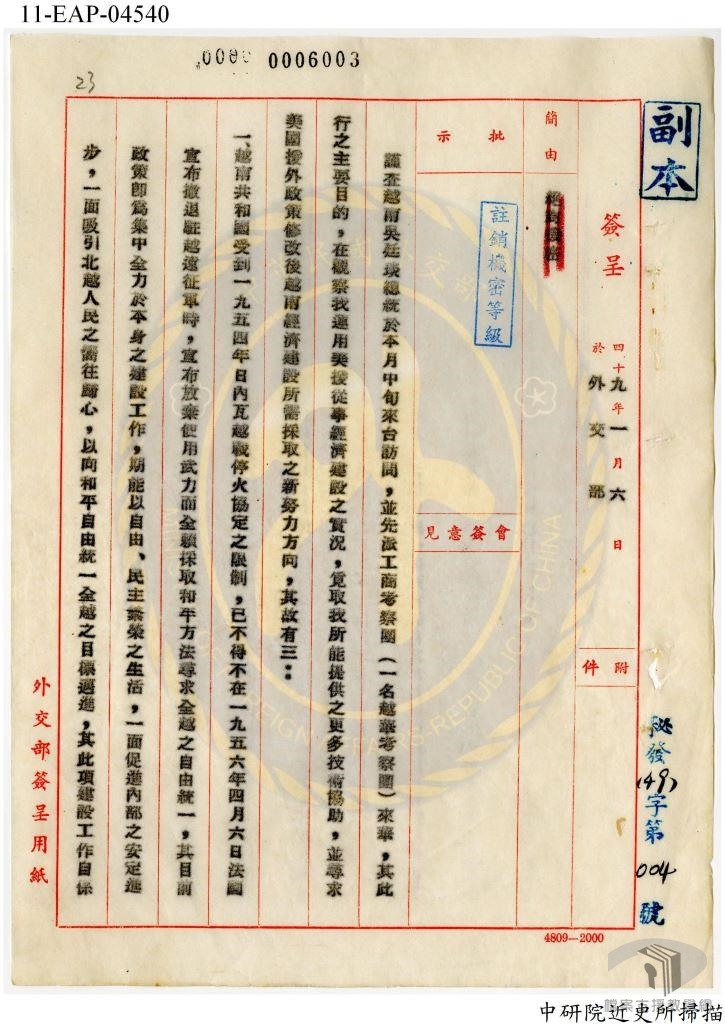 11-EAP-04540
0006003
23
副本
秘發(49)字第004號
簽呈
四十九年一月六日
於外交部
附件
簡由
註銷機密等級
批示
會簽意見
謹查越南吳廷琰總統於本月中旬來台訪問，並先派工商考察團（一名越華考察團）來華，其此
行之主要目的，在觀察我運用美援從事經濟建設之實況，覓取我所能提供之更多技術協助，並尋求
美國援外政策修改後越南經濟建設所需採取之新努力方向，其故有三：
一、越南共和國受到一九五四年日內瓦越戰停火協定之限制，已不得不在一九五六年四月六日法國
宣布撤退駐越遠征軍時，宣布放棄使用武力而全賴採取和平方法尋求全越之自由統一，其目前
政策即為集中全力於本身之建設工作，期能以自由、民主繁榮之生活，一面促進內部之安定進
步，一面吸引北越人民之嚮往歸心，以向和平自由統一全越之目標邁進，其此項建設工作自係
外交部簽呈用紙
4809—2000
檔案支援教學網
中研院近史所掃描